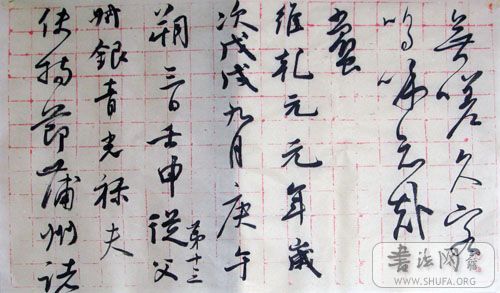 無嗟久客
嗚呼哀哉
尚饗
維乾元元年歲
次戊戌九月庚午
朔三日壬申從父
第十三
叔銀青光祿夫
使持節蒲州諸
书法网
WWW.SHUFA.ORG